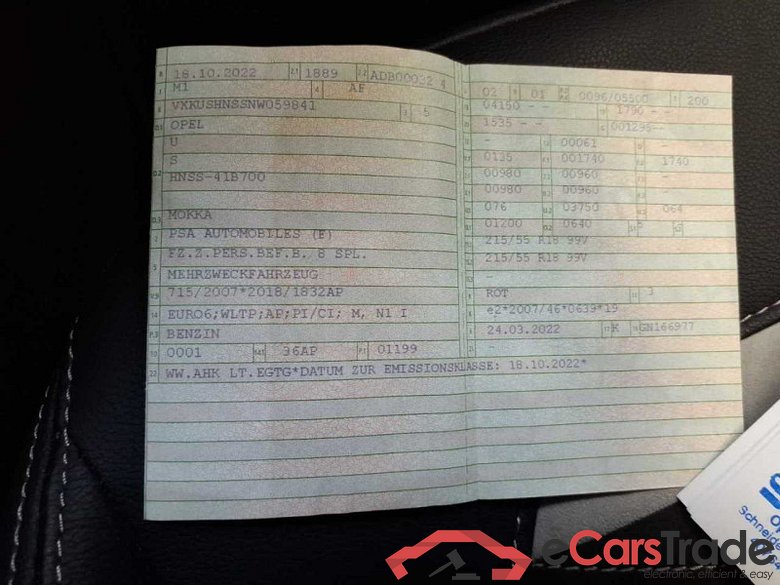 B 18.10.2022 2.1 1889 2.2 ADB00032 4
J M1 4 AF
E VXKUSHNSSNW059841 3 5
D.1 OPEL
U
D.2 S
HNSS-41B700
D.3 MOKKA
2 PSA AUTOMOBILES (E)
FZ.Z.PERS.BEF.B. 8 SPL.
5 MEHRZWECKFAHRZEUG
V.9 715/2007*2018/1832AP
14 EURO6;WLTP;AP;PI/CI; M, N1 I
P.3 BENZIN
10 0001 14.1 36AP P.1 01199
22 WW.AHK LT.EGTG*DATUM ZUR EMISSIONSKLASSE: 18.10.2022*
02 9 01 0096/05500 200
04150 - - 1790 - -
1535 - - 001295--
- 00061 -
0135 001740 1740
00980 00960 -
00980 00960 -
076 03750 064
01200 0640 5 -
215/55 R18 99V
215/55 R18 99V
-
ROT 11 3
e2*2007/46*0639*19
6 24.03.2022 17 K 16 GN166977
21 -
Schneide
eCarsTrade
electronic, efficient & easy